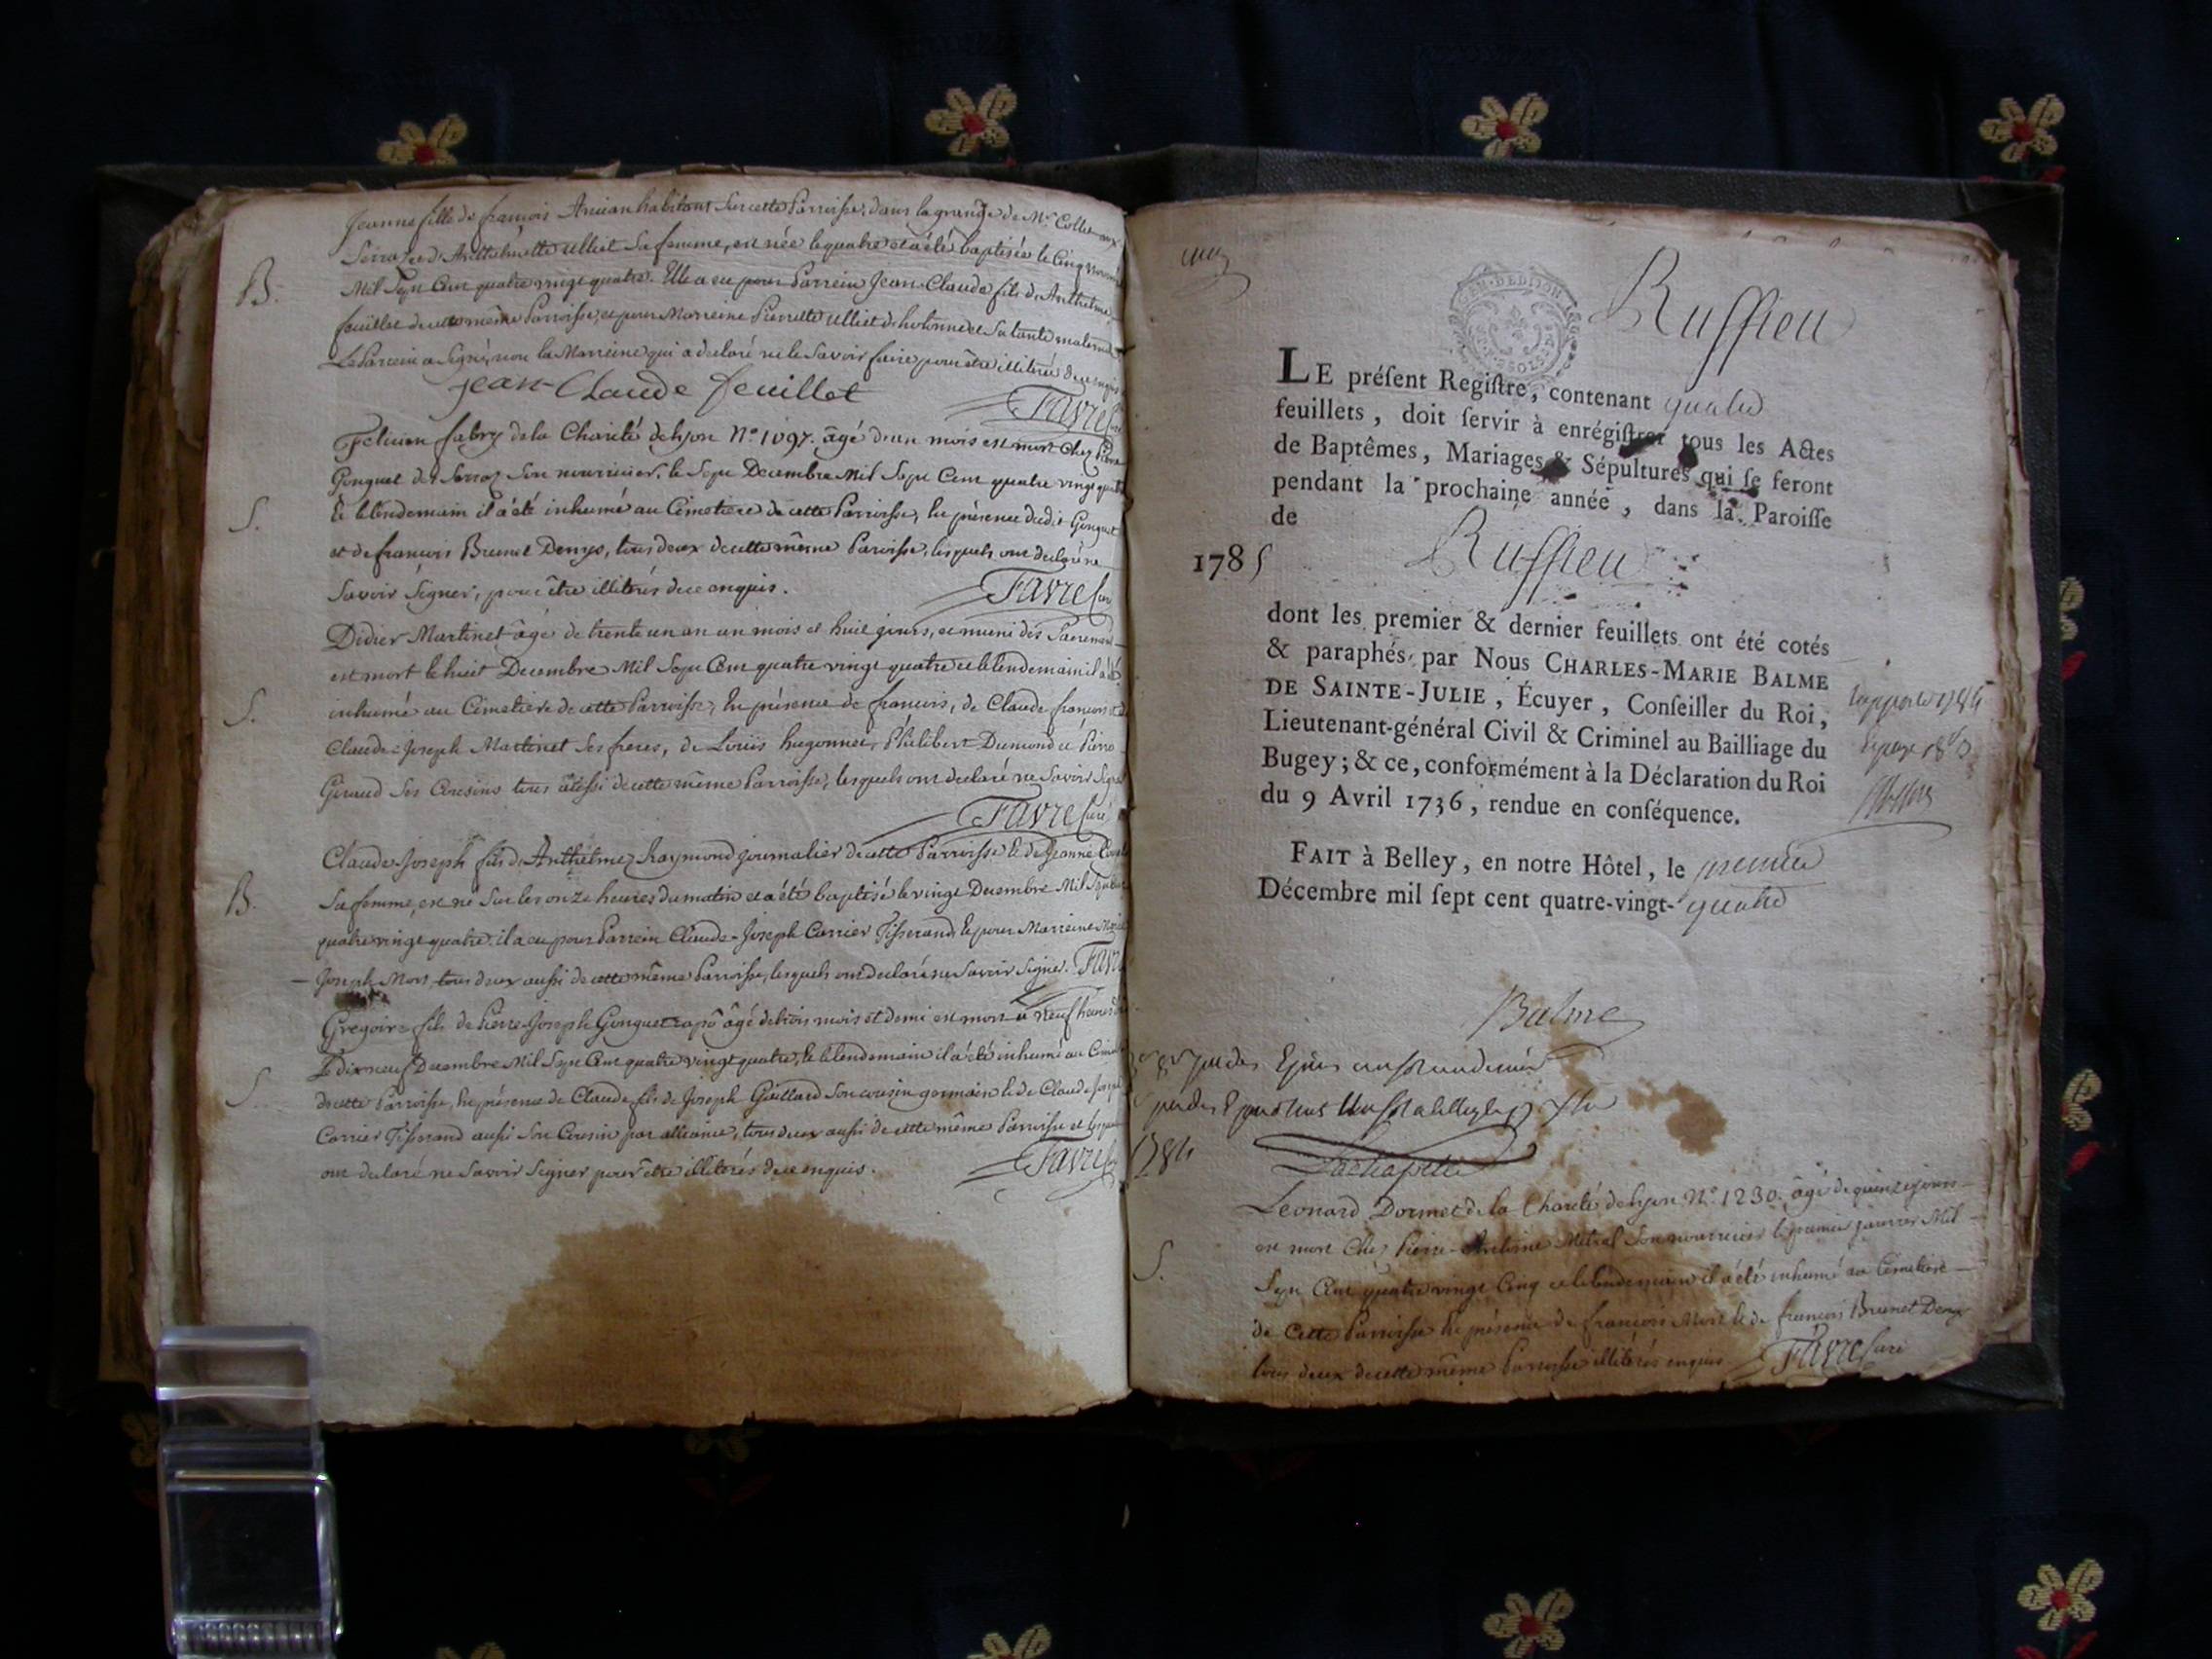 Jeanne fille de françois Ancian habitant sur cette Parroisse, dans la grange de Mr Collet aux
sa femme, est née le quatre et a été baptisée le Cinq
B. Mil Sept Cent quatre vingt quatre. Elle a eu pour Parrein Jean-Claude fils de Anthelme
feuillet de cette même Parroisse, et pour Marreine Pierrette Ulliet d'hotonne et Sa tante maternelle
Le Parrein a signé, non la Marreine qui a declaré ne le Savoir faire pour être illiterée de ce enquis
jean-Claude feuillet
Favre Curé
Felicien fabry de la Charité de Lyon No. 1097. âgé d'un mois est mort chez Pierre
Gonguet del Serroz Son nourricier, le Sept Decembre Mil Sept Cent quatre vingt quatre
S. Et le lendemain il a été inhumé au Cimetiere de cette Parroisse, En présence dudit Gonguet
et de françois Brunet Denys, tous deux de cette même Parroisse, lesquels ont declaré ne
Savoir Signer, pour être illiterés de ce enquis.
Favre Curé
Didier Martinet âgé de trente un an un mois et huit jours, et muni des Sacremens
est mort le huit Decembre Mil Sept Cent quatre vingt quatre et le lendemain il a été
S. inhumé au Cimetiere de cette Parroisse, En présence de françois, de Claude françois et de
Claude-Joseph Martinet Ses freres, de Loüis hugonnet, Philibert Dumond et Pierre
Giraud Ses Cousins tous aussi de cette même Parroisse, lesquels ont declaré ne Savoir Signer
Favre Curé
Claude-Joseph fils d'Anthelme Raymond journalier de cette Parroisse Et de Jeanne
B. Sa femme, est né Sur les onze heures du matin et a été baptisé le vingt Decembre Mil Sept Cent
quatre vingt quatre. il a eu pour Parrein Claude-Joseph Carrier Tisserand, Et pour Marreine Marie
Joseph Mort tous deux aussi de cette même Parroisse, lesquels ont declaré ne Savoir Signer. Favre
Gregoire fils de Pierre-Joseph Gonguet âgé de trois mois et demi est mort à neuf heures du
Le dix neuf Decembre Mil Sept Cent quatre vingt quatre, Et le lendemain il a été inhumé au Cimetiere
S. de cette Parroisse, En présence de Claude fils de Joseph Gaillard Son cousin germain Et de Claude Joseph
Carrier Tisserand aussi Son Cousin par alliance, tous deux aussi de cette même Parroisse et lesquels
ont declaré ne Savoir Signer pour être illiterés de ce enquis.
Favre
Ruffieu
GEN. DE DIJON
LE préſent Regiſtre, contenant quatre
feuillets, doit ſervir à enrégiſtrer tous les Actes
de Baptêmes, Mariages & Sépultures qui ſe feront
pendant la prochaine année, dans la Paroiſſe
de
1785 Ruffieu
dont les premier & dernier feuillets ont été cotés
& paraphés par Nous CHARLES-MARIE BALME
DE SAINTE-JULIE, Écuyer, Conſeiller du Roi,
Lieutenant-général Civil & Criminel au Bailliage du
Bugey; & ce, conformément à la Déclaration du Roi
du 9 Avril 1736, rendue en conſéquence.
FAIT à Belley, en notre Hôtel, le premier
Décembre mil ſept cent quatre-vingt-quatre
Balme
1784
Lachapelle
Leonard Dormet de la Charité de Lyon No. 1230. âgé de quinze jours
est mort Chez Pierre-Antoine Métral Son nourricier le premier janvier Mil
S. Sept Cent quatre vingt Cinq et le lendemain il a été inhumé au Cimetiere
de Cette Parroisse En présence de françois Mort Et de françois Brunet Denys
tous deux de cette même Parroisse illiterés enquis Favre Curé